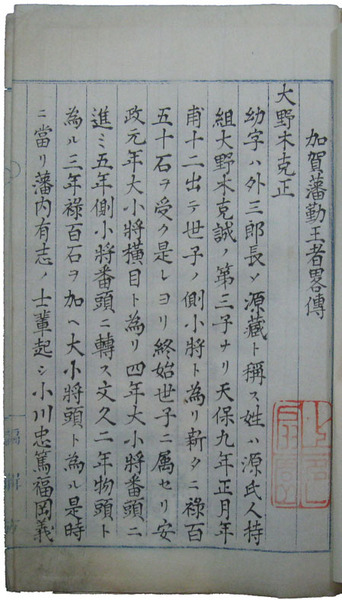 加賀藩勤王者畧傳
大野木克正
幼字ハ外三郎長シ源藏ト稱ス姓ハ源氏人持
組大野木克誠ノ第三子ナリ天保九年正月年
甫十二出テ世子ノ側小将ト為リ新タニ祿百
五十石ヲ受ク是レヨリ終始世子ニ属セリ安
政元年大小将横目ト為リ四年大小将番頭ニ
進ミ五年側小将番頭ニ轉ス文久二年物頭ト
為ル三年祿百石ヲ加ヘ大小将頭ト為ル是時
ニ當リ藩内有志ノ士輩起シ小川忠篤福岡義